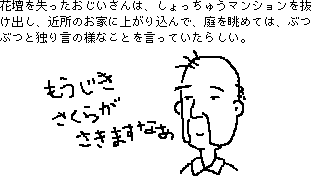 花壇を失ったおじいさんは、しょっちゅうマンションを抜
け出し、近所のお家に上がり込んで、庭を眺めては、ぶつ
ぶつと独り言の様なことを言っていたらしい。
もうじき
さくらが
さきますなあ